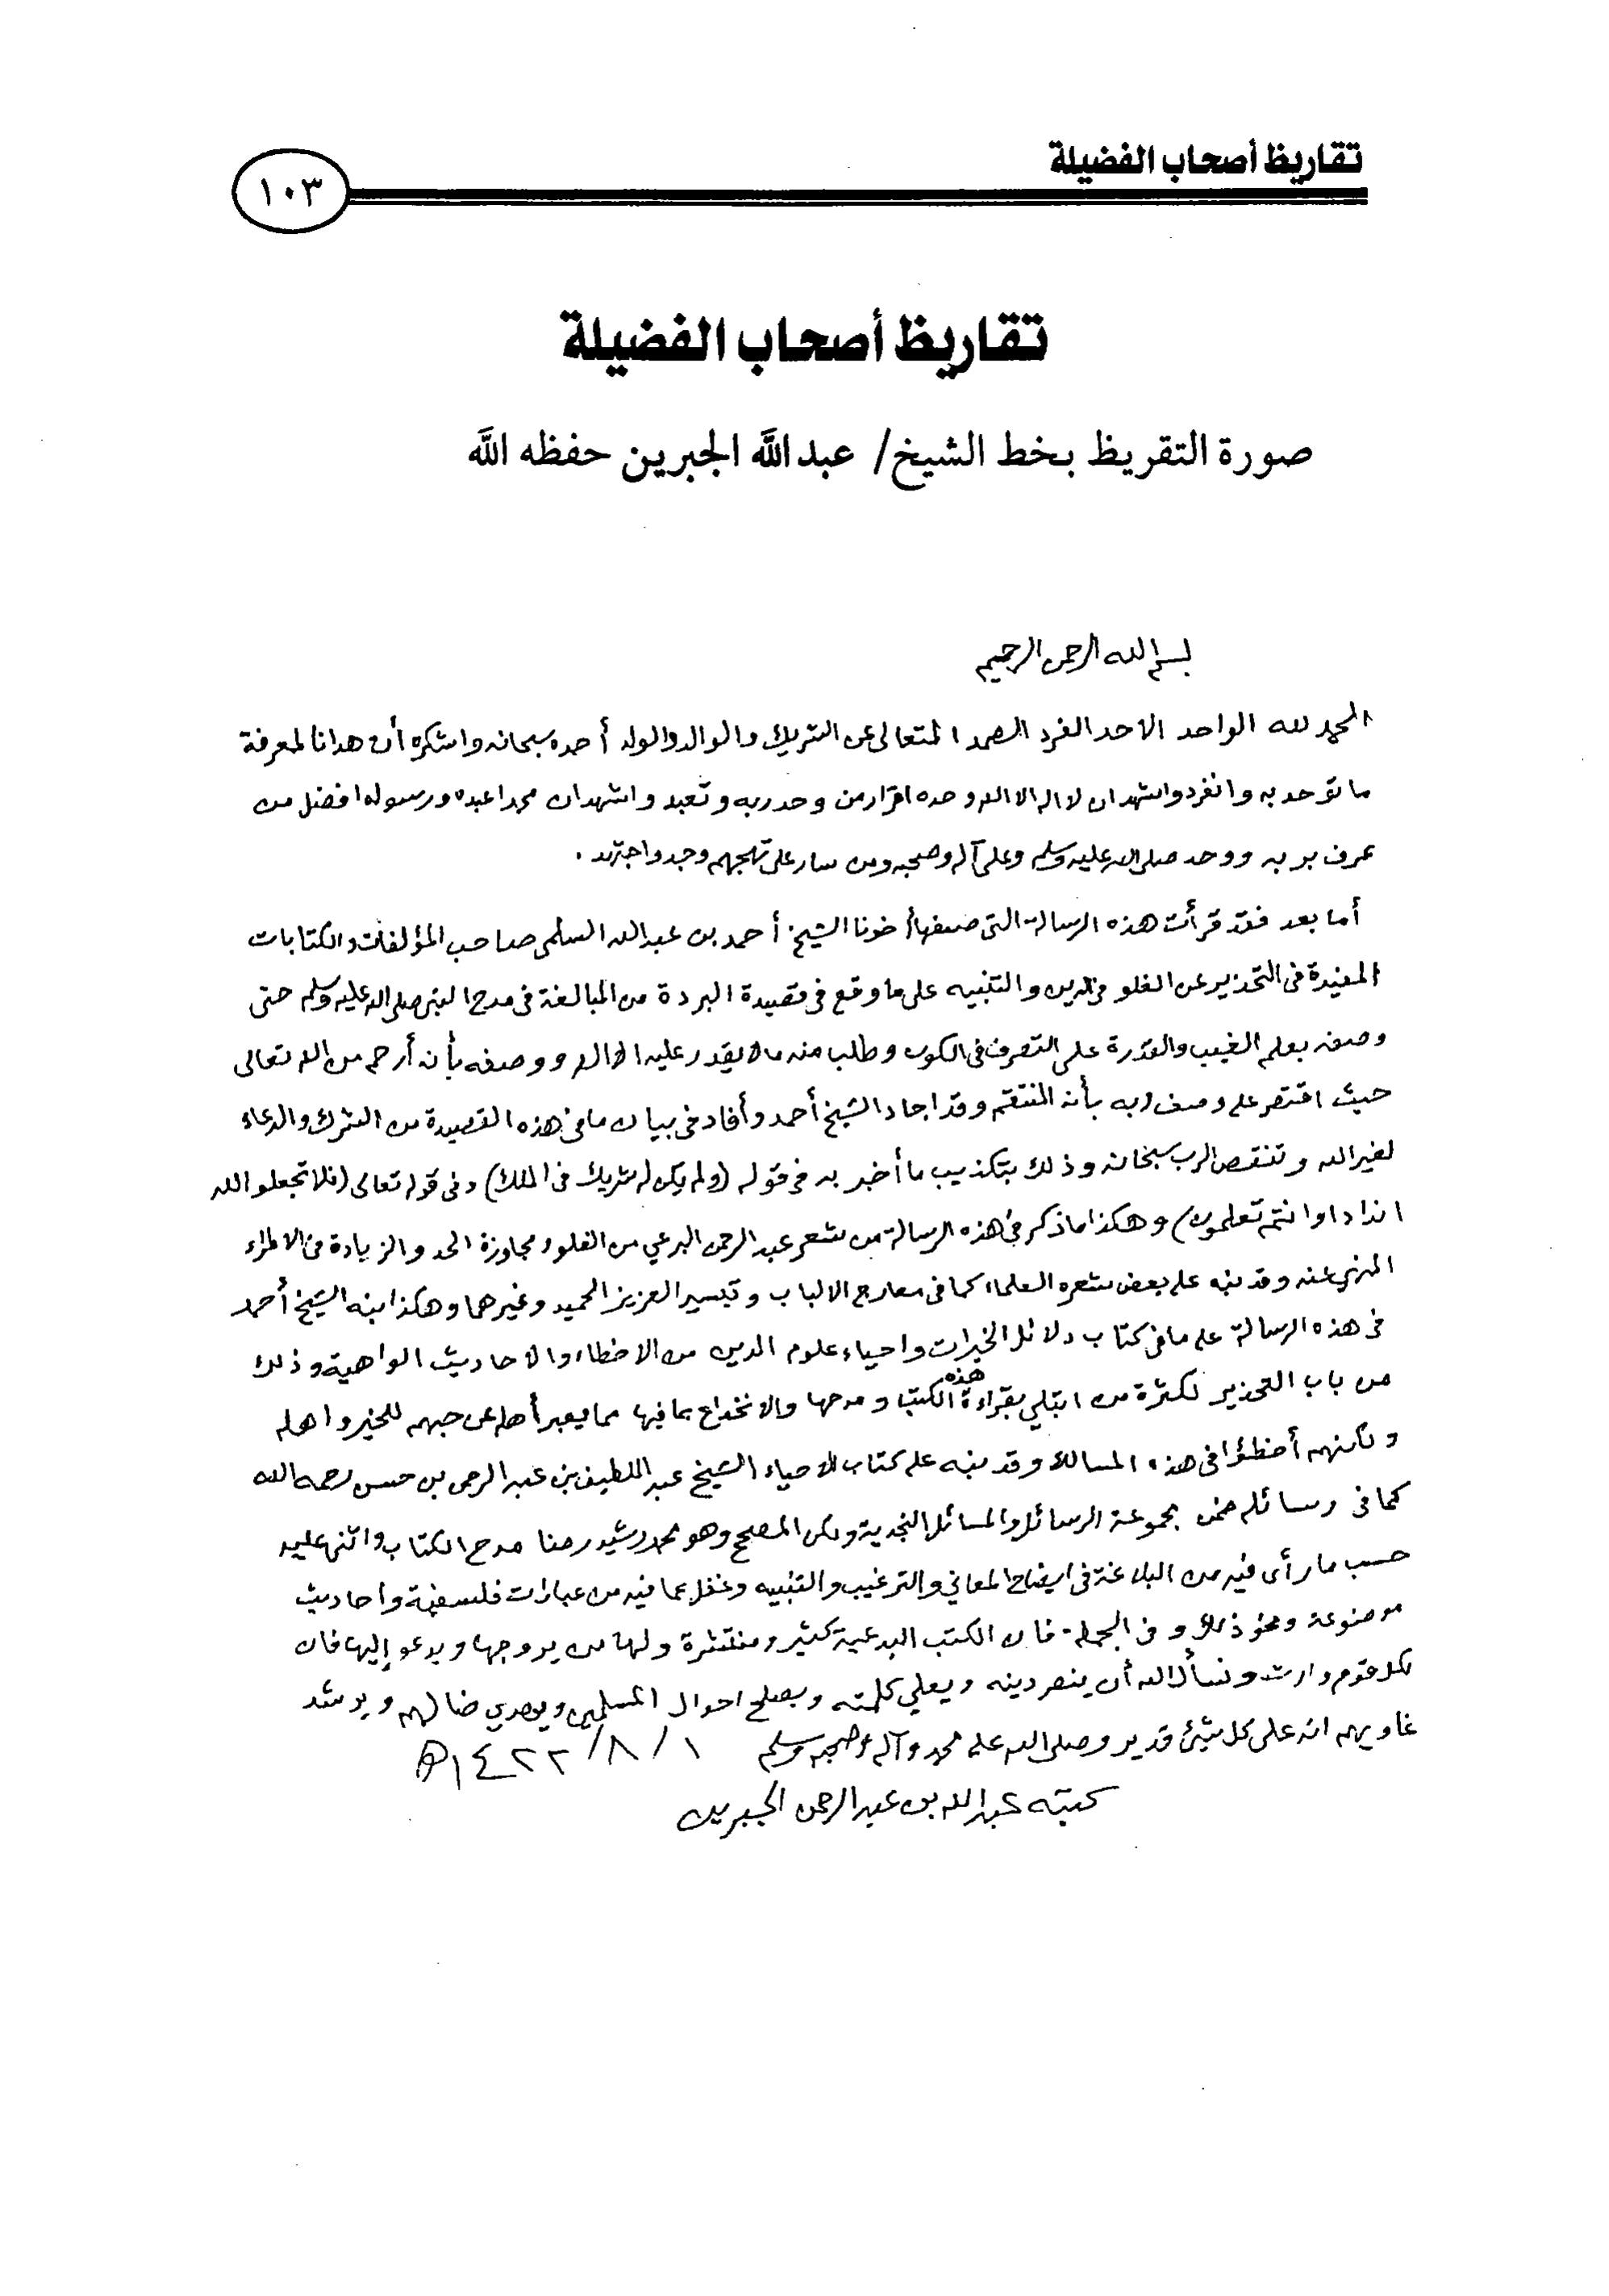 تقاريظ أصحاب الفضيلة
١٠٣
تقاريظ أصحاب الفضيلة
صورة التقريظ بخط الشيخ/ عبدالله الجبرين حفظه الله
بسم الله الرحمن الرحيم
الحمد لله الواحد الاحد الفرد الصمد المتعالى عن الشريك والوالد والولد أحمده سبحانه واشكره أن هدانا لمعرفة
ما توحد به وانفرد واشهد ان لا اله الا الله وحده اقرار من وحد ربه وتعبد واشهد ان محمدا عبده ورسوله افضل من
عرف بربه ووحد صلى الله عليه وسلم وعلى آله وصحبه ومن سار على نهجهم وجد واجتهد .
أما بعد فقد قرأت هذه الرسالة التى صنفها أخونا الشيخ أحمد بن عبدالله السلمى صاحب المؤلفات والكتابات
المفيدة فى التحذير عن الغلو فى الدين والتنبيه على ما وقع فى قصيدة البردة من المبالغة فى مدح النبى صلى الله عليه وسلم حتى
وصفه بعلم الغيب والقدرة على التصرف فى الكون وطلب منه مالا يقدر عليه الا الله ووصفه بأنه أرحم من الله تعالى
حيث اقتصر على وصف ربه بأنه المنتقم وقد اجاد الشيخ أحمد وأفاد فى بيان ما فى هذه القصيدة من الشرك والدعاء
لغير الله وتنقص الرب سبحانه وذلك بتكذيب ما أخبر به فى قوله (ولم يكن له شريك فى الملك) وفى قوله تعالى (فلا تجعلوا لله
اندادا وانتم تعلمون) وهكذا ما ذكر فى هذه الرسالة من شعر عبدالرحمن البرعي من الغلو ومجاوزة الحد والزيادة فى الاطراء
المنهي عنه وقد نبه على بعض شعره العلماء كما فى معارج الالباب وتيسير العزيز الحميد وغيرهما وهكذا نبه الشيخ أحمد
فى هذه الرسالة على ما فى كتاب دلائل الخيرات واحياء علوم الدين من الاخطاء والاحاديث الواهية وذلك
من باب التحذير لكثرة من ابتلي بقراءة هذه الكتب ومدحها والانخداع بما فيها مما يعبر أهله عن حبهم للخير واهله
ولكنهم أخطؤا فى هذه المسالك وقد نبه على كتاب الاحياء الشيخ عبداللطيف بن عبدالرحمن بن حسن رحمه الله
كما فى رسائله ضمن مجموعة الرسائل والمسائل النجدية ولكن المصحح وهو محمد رشيد رضا مدح الكتاب واثنى عليه
حسب ما رأى فيه من البلاغة فى ايضاح المعاني والترغيب والتنبيه وغفل عما فيه من عبارات فلسفية واحاديث
موضوعة ونحو ذلك وفى الجملة فان الكتب البدعية كثيرة منتشرة ولها من يروجها ويدعو إليها فان
لكل قوم وارث ونسأل الله أن ينصر دينه ويعلي كلمته ويصلح احوال المسلمين ويهدي ضالهم ويرشد
غاويهم انه على كل شيئ قدير وصلى الله على محمد وآله وصحبه وسلم ١/٨/١٤٢٢هـ
كتبه عبدالله بن عبدالرحمن الجبرين